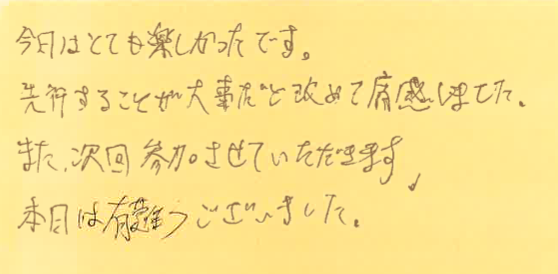 今日はとても楽しかったです。
先行することが大事だと改めて痛感しました。
また、次回参加させていただきます
本日は有難うございました。